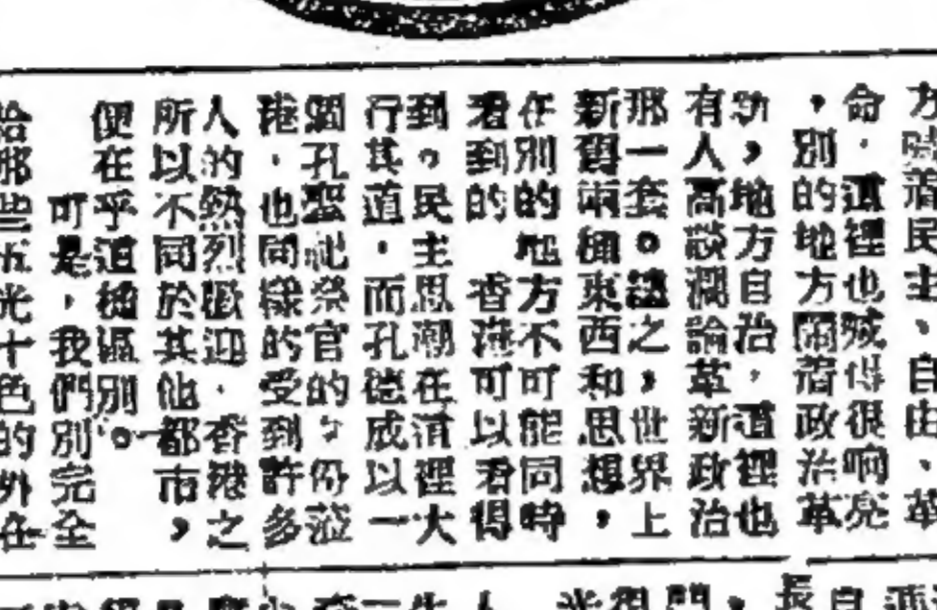 方喊着民主、自由、革
命，這裡也喊得很响亮
，別的地方鬧着政治革
新，地方自治，這裡也
有人高談濶論革新政治
那一套。總之，世界上
新舊兩種東西和思想，
在別的地方不可能同時
看到的 香港可以看得
到。民主思潮在這裡大
行其道，而孔德成以一
個孔聖祀祭官的 份蒞
港，也同樣的受到許多
人的熱烈歡迎，香港之
所以不同於其他都市，
便在乎這種區別。
可是，我們別完全
給那些五光十色的外在